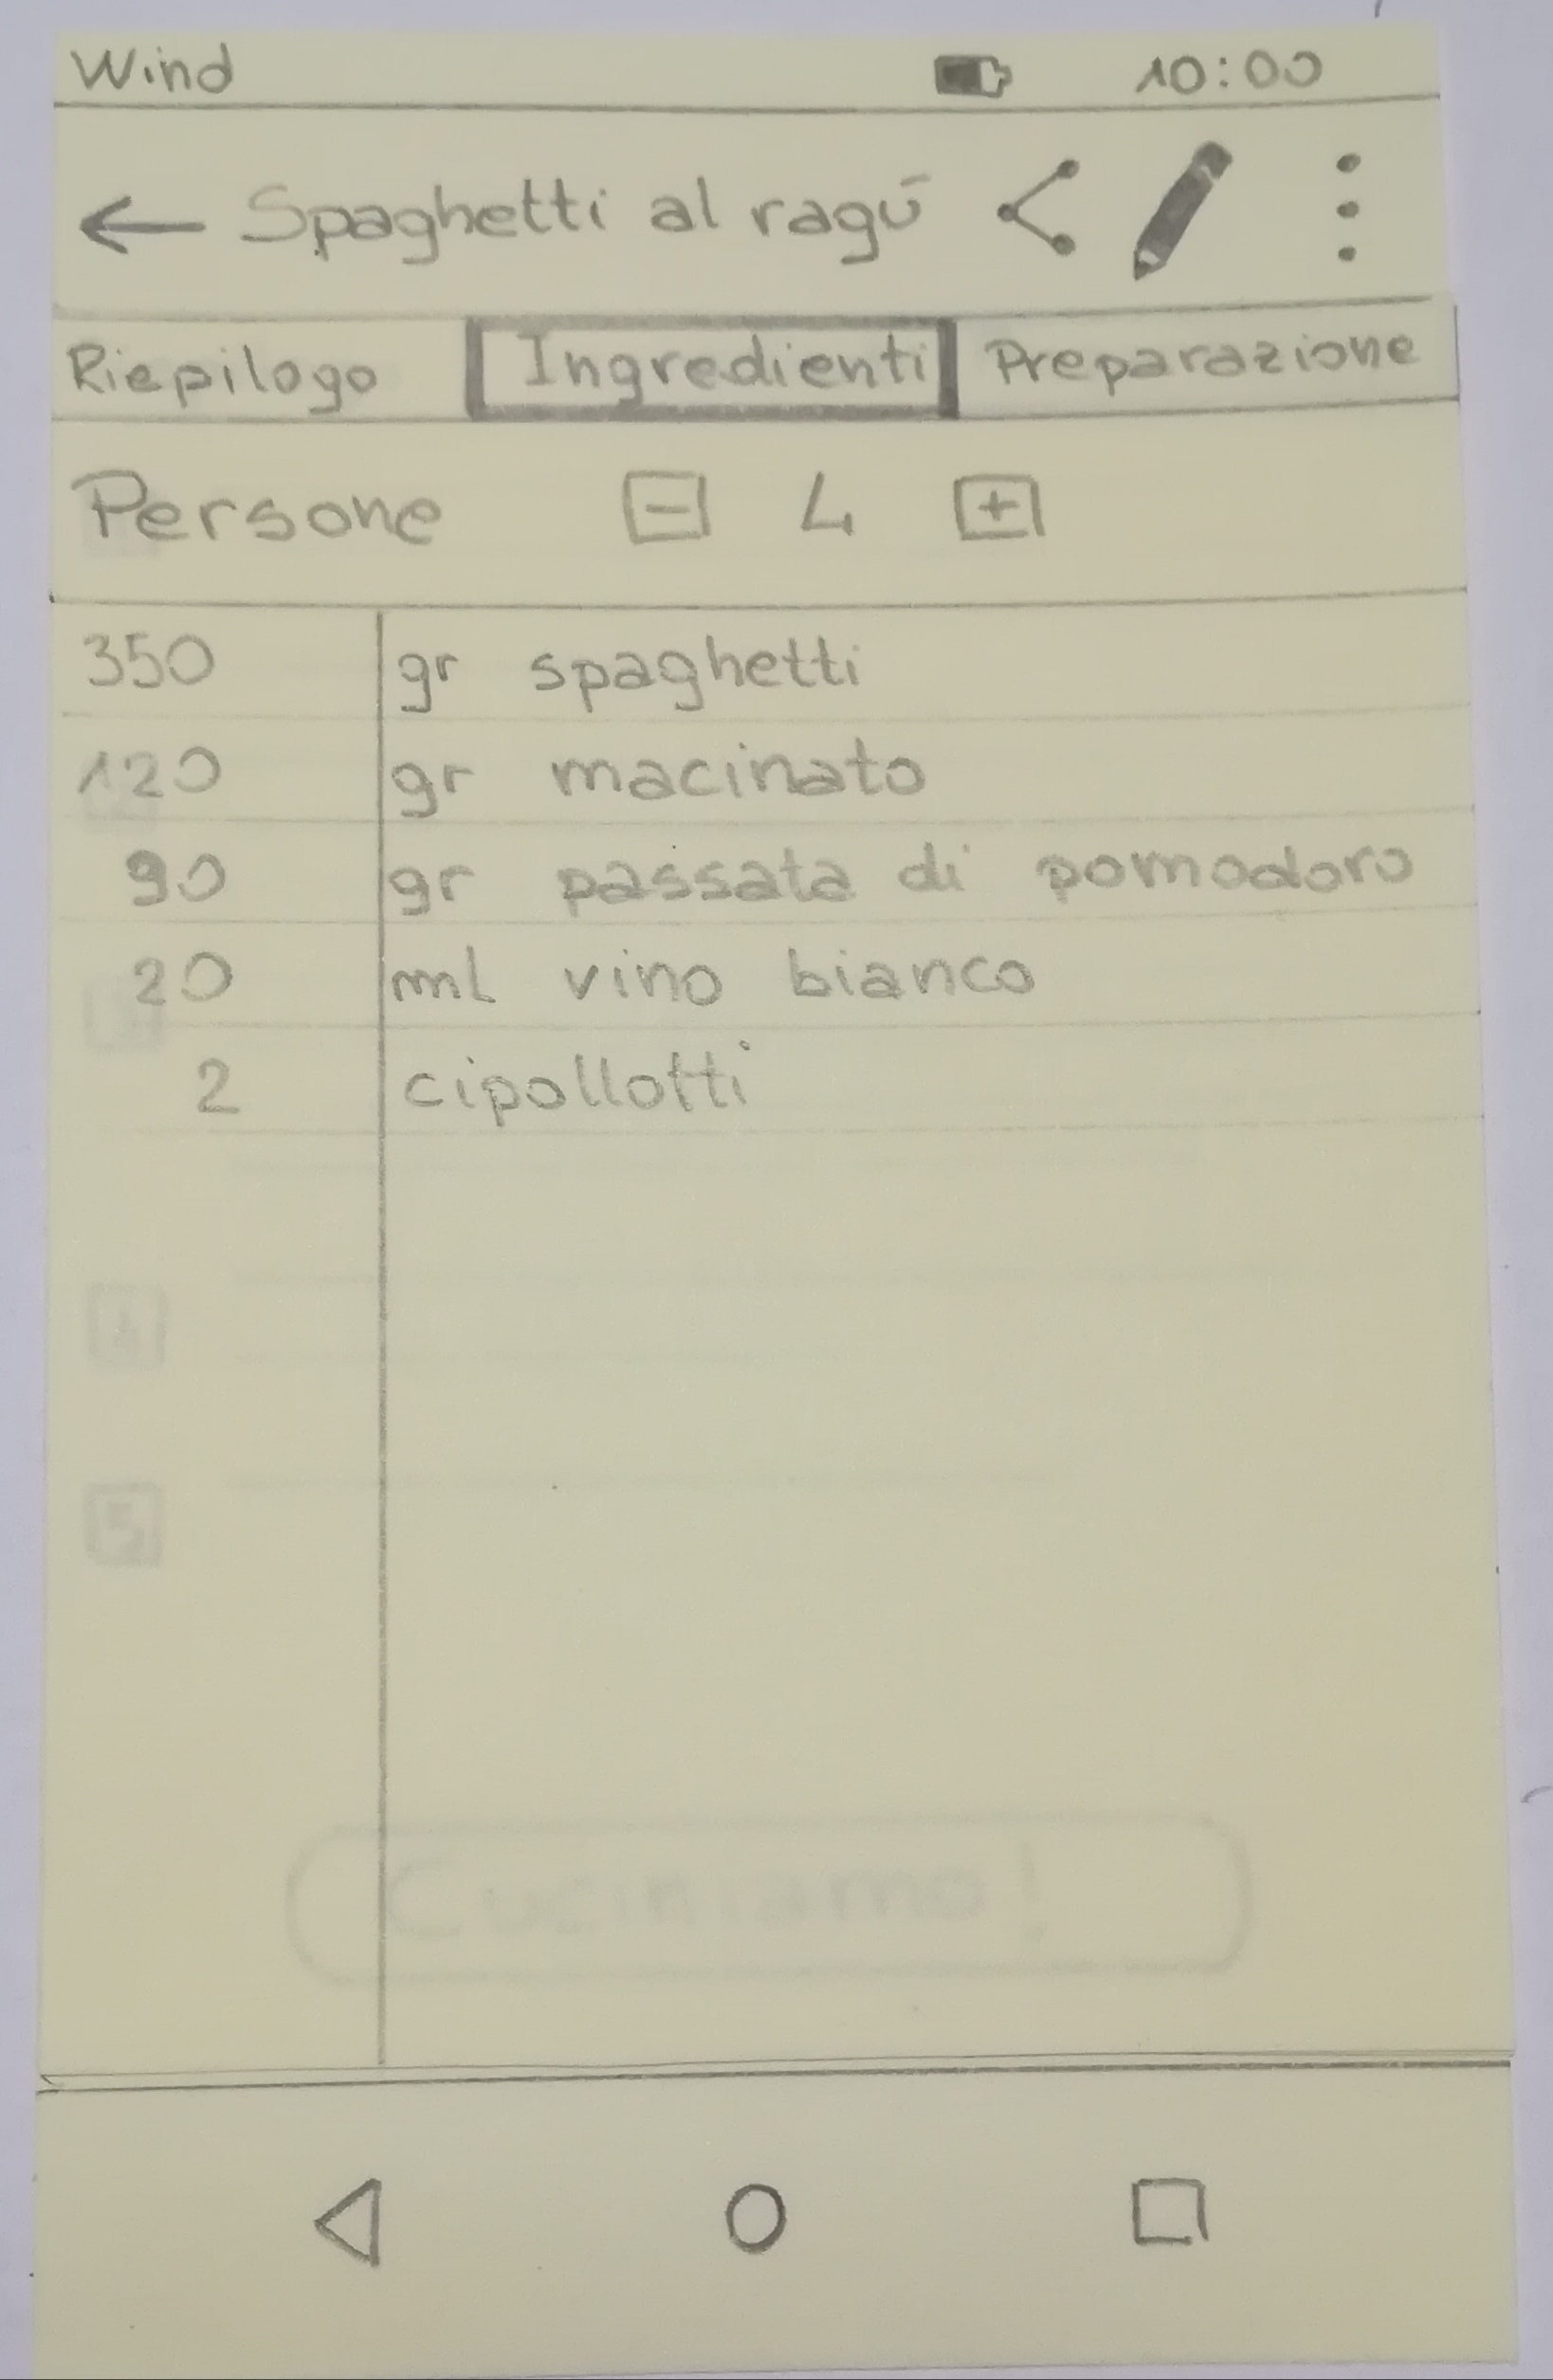 Wind 10:00
Spaghetti al ragū
Riepilogo Ingredienti Preparazione
Persone - 4 +
350 gr spaghetti
120 gr macinato
90 gr passata di pomodoro
20 ml vino bianco
2 cipollotti
4
5
Cuciniamo!